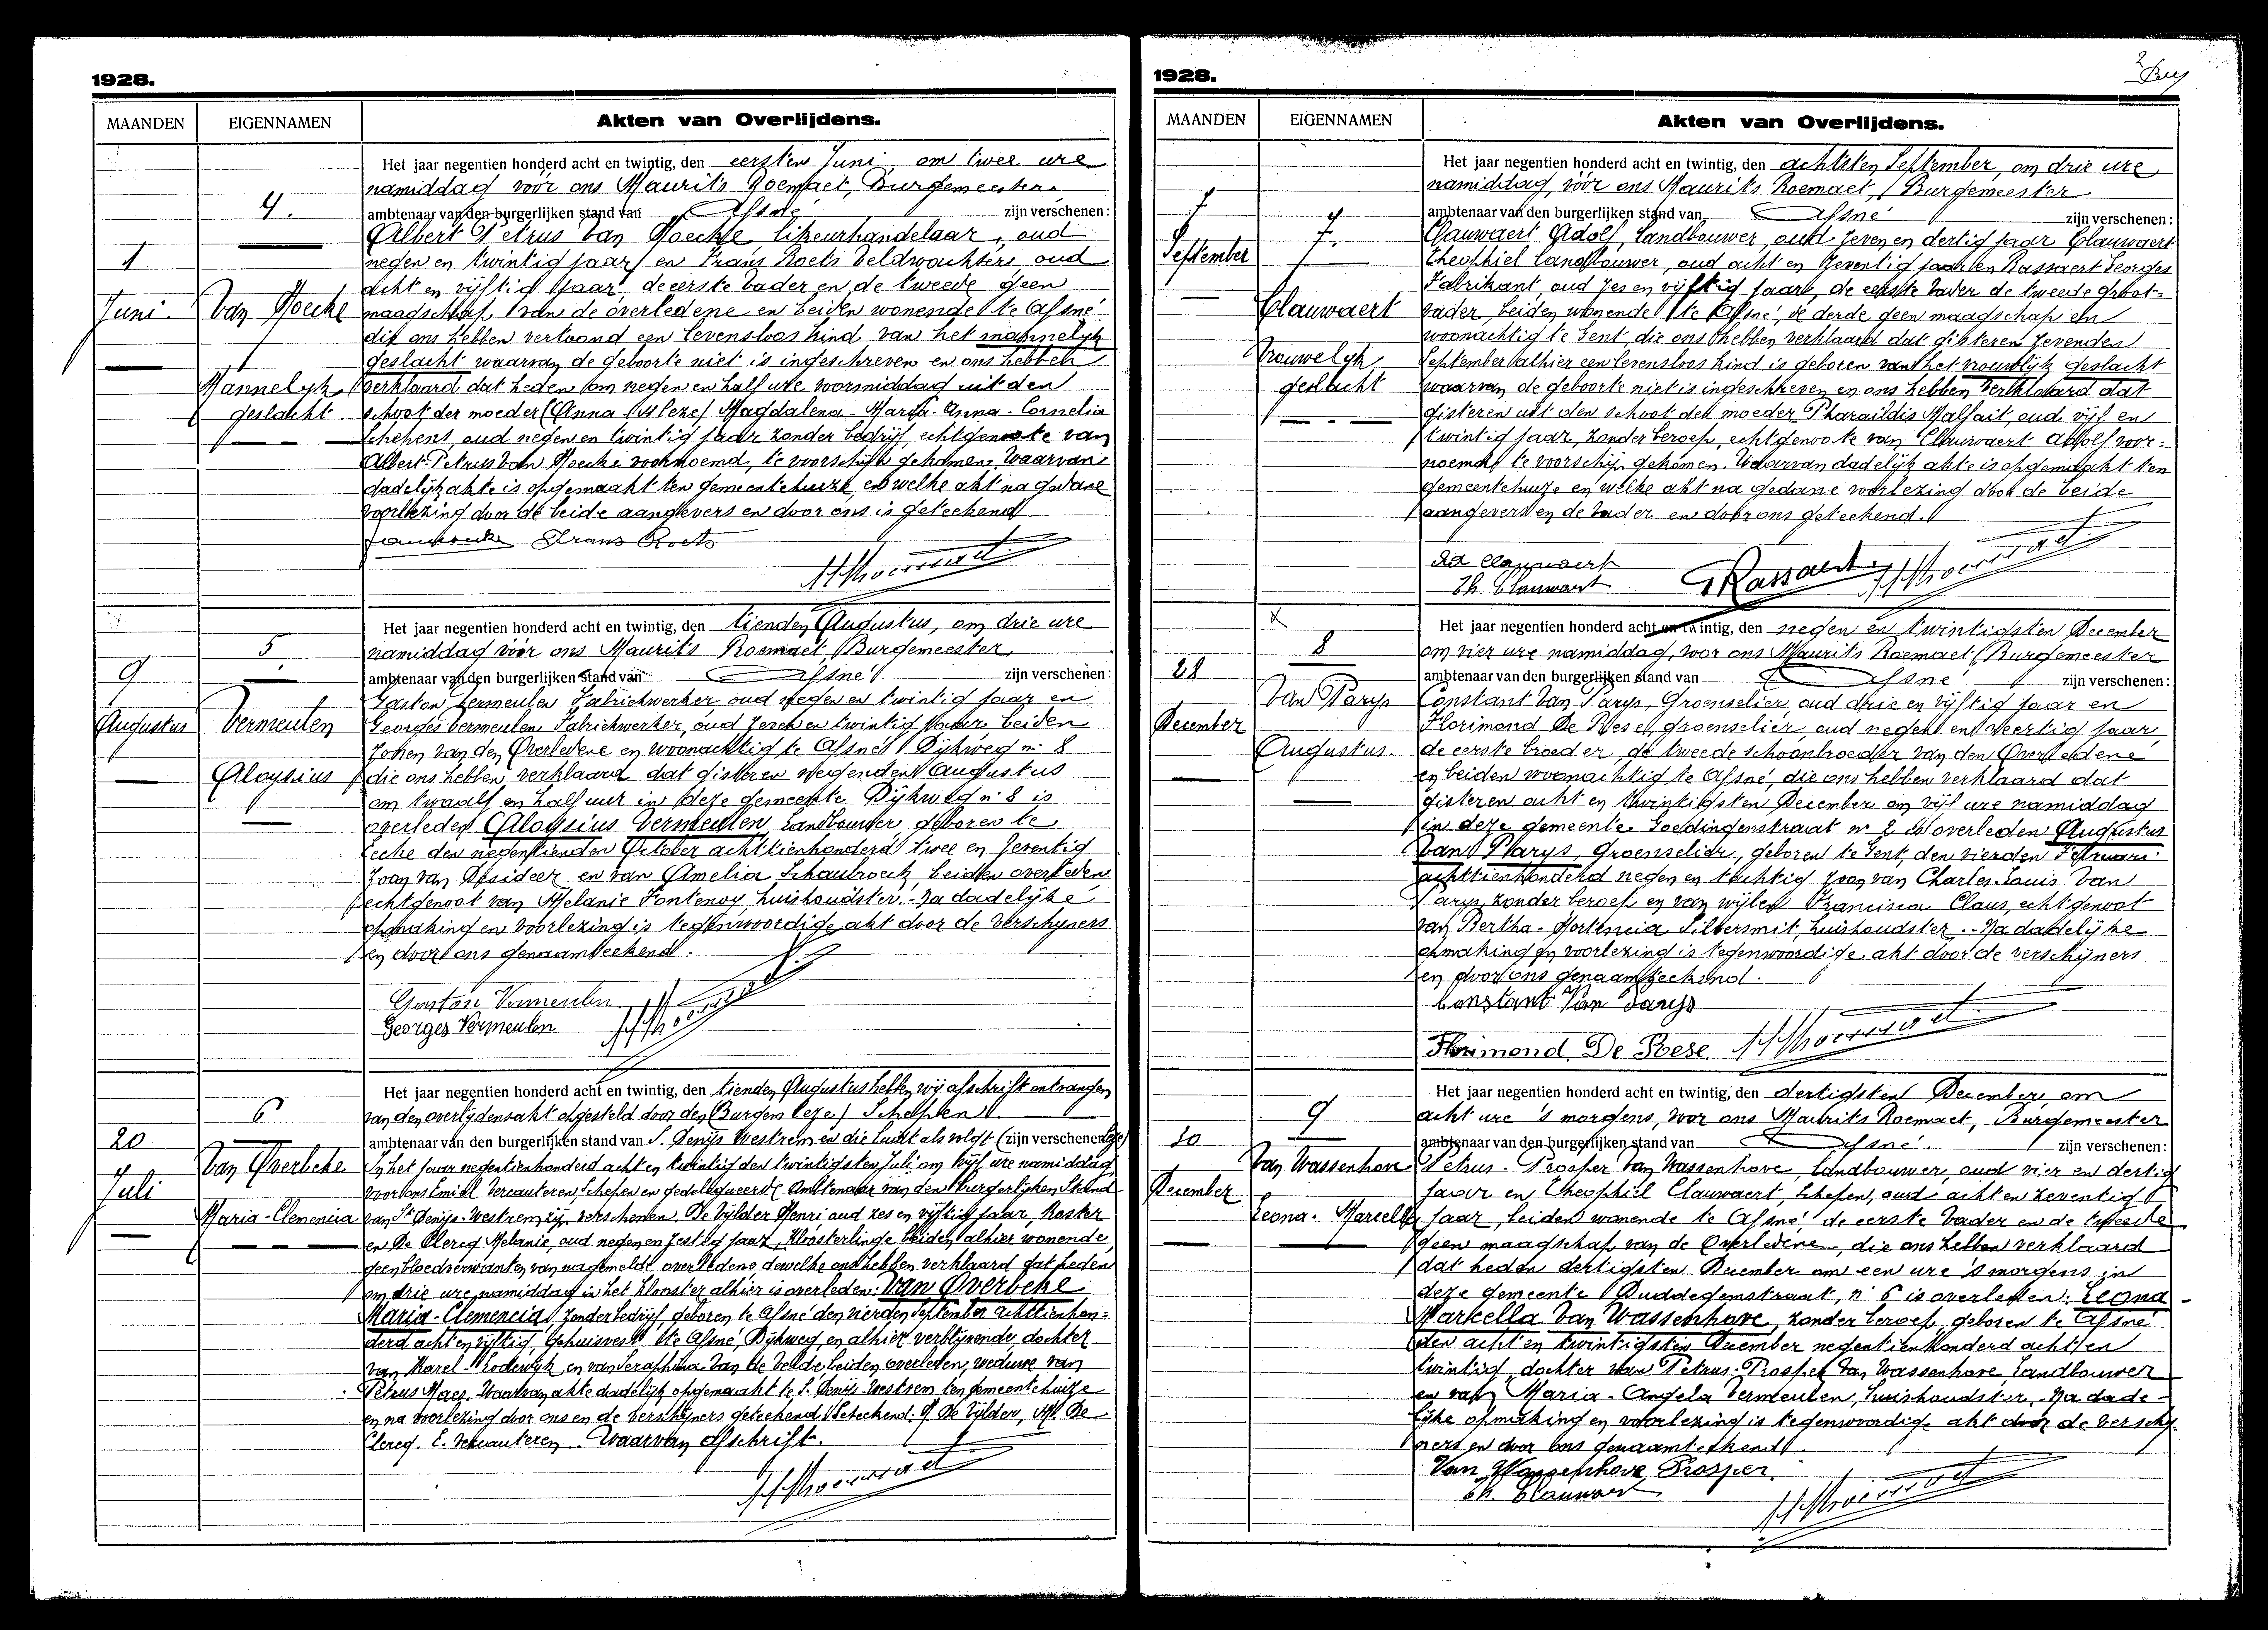 1928.
MAANDEN EIGENNAMEN Akten van Overlijdens.
4.
1
Juni. Van Hoecke
Mannelijk
geslacht
Het jaar negentien honderd acht en twintig, den eersten Juni om twee ure
namiddag voor ons Maurits Roemaet, Burgemeester
ambtenaar van den burgerlijken stand van Afsné zijn verschenen:
Albert Petrus Van Hoecke likeurhandelaar, oud
negen en twintig jaar en Frans Roets veldwachter, oud
acht en vijftig jaar de eerste vader en de tweede geen
maagschap van de overledene en beiden wonende te Afsné
die ons hebben vertoond een levensloos kind van het mannelijk
geslacht waarvan de geboorte niet is ingeschreven en ons hebben
verklaard dat heden om negen en half ure voormiddag uit den
schoot der moeder (Anna (leze) Magdalena-Maria-Anna-Cornelia
Schepens, oud negen en twintig jaar zonder bedrijf, echtgenoote van
Albert-Petrus Van Hoecke voornoemd, te voorschijn gekomen. Waarvan
dadelijk akte is opgemaakt ten gemeentehuize, en welke akt na gedane
voorlezing door de beide aangevers en door ons is geteekend
Frans Roets
5
9
Augustus Vermeulen
Aloysius
Het jaar negentien honderd acht en twintig, den tienden Augustus, om drie ure
namiddag vóór ons Maurits Roemaet Burgemeester,
ambtenaar van den burgerlijken stand van Afsné zijn verschenen:
Gaston Vermeulen Fabriekwerker oud negen en twintig jaar en
Georges Vermeulen Fabriekwerker, oud zesch en twintig jaar, beiden
zonen van den Overledene en woonachtig te Afsné Dijkweg n: 8
die ons hebben verklaard dat gisteren negenden Augustus
om twaalf en half uur in deze gemeente Dijkweg n: 8 is
overleden Aloysius Vermeulen, Landbouwer geboren te
Eecke den negentienden October achttienhonderd twee en zeventig
zoon van Desideer en van Amelia Schaubroeck, beiden overleden
echtgenoot van Melanie Fontenoy huishoudster. Na dadelijke
opmaking en voorlezing is tegenwoordige akt door de verschijners
en door ons genaamteekend.
Gaston Vermeulen
Georges Vermeulen
6
20
Juli
Van Overbeke
Maria-Clemencia
Het jaar negentien honderd acht en twintig, den tienden Augustus hebben wij afschrift ontvangen
van den overlijdensakt opgesteld door den (Burgem leze) Schepen
ambtenaar van den burgerlijken stand van S. Denijs Westrem en die luidt als volgt (zijn verschenen
In het jaar negentienhonderd acht en twintig den twintigsten Juli om vijf ure namiddag
voor ons Emiel Vercauteren Schepen en gedelegueerde Ambtenaar van den Burgerlijken Stand
van St Denijs-Westrem, zijn verschenen. De Vylder Henri oud zes en vijftig jaar, Koster
en De Clercq Melanie, oud negen en zestig jaar, Kloosterlinge beiden alhier wonende,
geen bloedverwanten van nagemelde overledene dewelke ons hebben verklaard dat heden
om drie ure namiddag in het klooster alhier is overleden: Van Overbeke
Maria-Clemencia, zonder bedrijf, geboren te Afsné den vierden September achttienhon-
derd acht en vijftig, Gehuisvest te Afsné, Dijkweg, en alhier verblijvende, dochter
van Karel-Lodewijk en van Seraphina Van de Velde, beiden overleden, weduwe van
Petrus Maes. Waarvan akte dadelijk opgemaakt te S. Denijs-Westrem ten gemeentehuize
en na voorlezing door ons en de verschijners geteekend. Geteekend: H. De Vylder, M. De
Clercq. E. Vercauteren. Waarvan afschrift.
1928.
MAANDEN EIGENNAMEN Akten van Overlijdens.
7
September
7.
Clauwaert
Vrouwelijk
geslacht
Het jaar negentien honderd acht en twintig, den achtsten September, om drie ure
namiddag, vóór ons Maurits Roemaet, Burgemeester
ambtenaar van den burgerlijken stand van Afsné zijn verschenen:
Clauwaert Adolf, Landbouwer, oud zeven en dertig jaar Clauwaert
Theophiel landbouwer, oud acht en zeventig jaar en Rassaert Georges
Fabrikant oud zes en vijftig jaar, de eerste vader de tweede groot-
vader, beiden wonende te Afsné, de derde geen maagschap en
woonachtig te Gent, die ons hebben verklaard dat gisteren zevenden
September alhier een levensloos kind is geboren van het vrouwlijk geslacht
waarvan de geboorte niet is ingeschreven en ons hebben verklaard dat
gisteren uit den schoot der moeder Pharaildis Malfait, oud vijf en
twintig jaar, zonder beroep, echtgenoote van Clauwaert Adolf voor-
noemd, te voorschijn gekomen. Waarvan dadelijk akte is opgemaakt ten
gemeentehuize en welke akt na gedane voorlezing door de beide
aangevers en de vader en door ons geteekend.
Ad Clauwaert
Th. Clauwaert G Rassaert
8
28
December
Van Parys
Augustus.
Het jaar negentien honderd acht en twintig, den negen en twintigsten December
om vier ure namiddag, voor ons Maurits Roemaet, Burgemeester
ambtenaar van den burgerlijken stand van Afsné zijn verschenen:
Constant Van Parys, Groenselier oud drie en vijftig jaar en
Florimond De Poese, groenselier, oud negen en veertig jaar,
de eerste broeder, de tweede schoonbroeder van den Overledene
en beiden woonachtig te Afsné, die ons hebben verklaard dat
gisteren acht en twintigsten December om vijf ure namiddag
in deze gemeente Goedingenstraat nr 2 is overleden Augustus
Van Parys, Groenselier, geboren te Gent, den vierden Februari
achttienhonderd negen en tachtig zoon van Charles-Louis Van
Parys, zonder beroep en van wijlen Francisca Claus, echtgenoot
van Bertha-Hortencia Silbersmit, huishoudster.. Na dadelijke
opmaking en voorlezing is tegenwoordige akt door de verschijners
en door ons genaamteekend.
Constant Van Parijs
Florimond. De Poese.
9
30
December
Van Wassenhove
Leona-Marcella
Het jaar negentien honderd acht en twintig, den dertigsten December, om
acht ure 's morgens, voor ons Maurits Roemaet, Burgemeester
ambtenaar van den burgerlijken stand van Afsné. zijn verschenen:
Petrus-Prosper Van Wassenhove, landbouwer, oud vier en dertig
jaar en Theophiel Clauwaert, Schepen, oud acht en zeventig
jaar, beiden wonende te Afsné, de eerste vader en de tweede
geen maagschap van de Overledene, die ons hebben verklaard
dat heden dertigsten December om een ure 's morgens in
deze gemeente Duddegemstraat, n: 6 is overleden: Leona-
Markella Van Wassenhove, zonder beroep, geboren te Afsné
den acht en twintigsten December negentienhonderd acht en
twintig, dochter van Petrus-Prosper Van Wassenhove Landbouwer
en van Maria-Angela Vermeulen, huishoudster. Na dade-
lijke opmaking en voorlezing is tegenwoordige akt door de verschij-
ners en door ons genaamteekend.
Van Wassenhove Prosper.
Th. Clauwaert